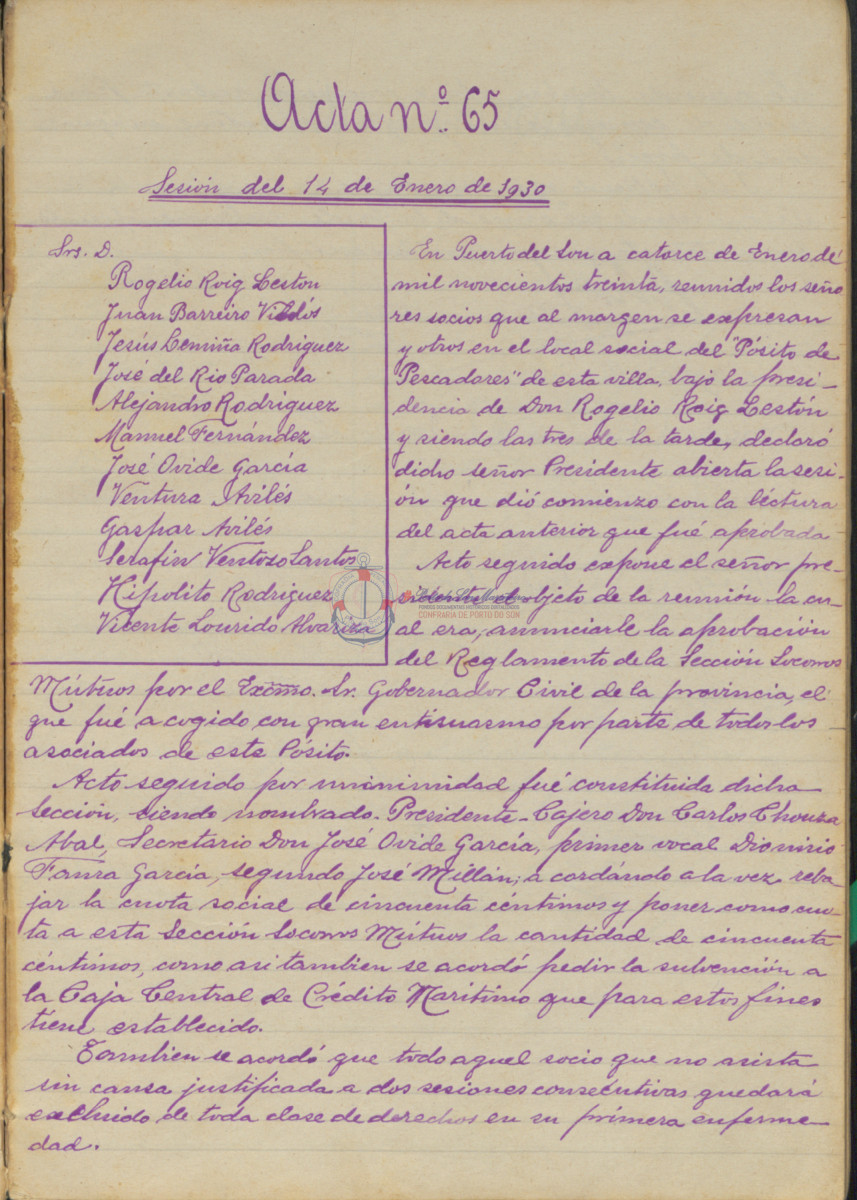 Acta nº. 65
Sesión del 14 de Enero de 1930
Srs. D.
Rogelio Roig Leston
Juan Barreiro
Jesús Lemiña Rodriguez
José del Rio Parada
Alejandro Rodriguez
Manuel Fernández
José Ovide García
Ventura Avilés
Gaspar Avilés
Serafin Ventoso Santos
Hipolito Rodriguez
Vicente Lourido Alvariza
En Puerto del Son a catorce de Enero de
mil novecientos treinta, reunidos los seño
res socios que al margen se expresan
y otros en el local social del "Pósito de
Pescadores" de esta villa, bajo la presi-
dencia de Don Rogelio Roig Lestón
y siendo las tres de la tarde, declaró
dicho señor Presidente abierta la sesi-
ón que dió comienzo con la léctura
del acta anterior que fué aprobada
Acto seguido expone el señor pre-
sidente el objeto de la reunión la cu-
al era, anunciarle la aprobación
del Reglamento de la Sección Socorros
Mútuos por el Excmo. Sr. Gobernador Civil de la provincia, el
que fué acogido con gran entisuasmo por parte de todos los
asociados de este Pósito.
Acto seguido por uninimidad fué constituida dicha
Sección, siendo nombrado. Presidente-Cajero Don Carlos Chouza
Abal, Secretario Don José Ovide García, primer vocal Dionisio
García, segundo José Millán; acordándo a la vez reba
jar la cuota social de cincuenta céntimos y poner como cuo-
ta a esta Sección Socorros Mútuos la cantidad de cincuenta
céntimos, como asi tambien se acordó pedir la subvención a
la Caja Central de Crédito Marítimo que para estos fines
tiene establecido.
Tambien se acordó que todo aquel socio que no asista
sin causa justificada a dos sesiones consecutivas quedará
excluido de toda clase de derechos en su primera enferme
dad.
FONDOS DOCUMENTAIS HISTÓRICOS DIXITALIZADOS
CONFRARÍA DE PORTO DO SON